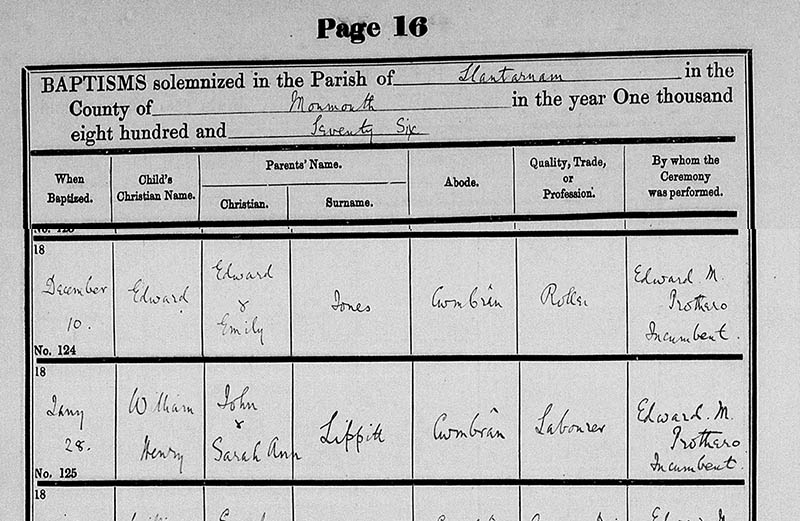 Page 16
BAPTISMS solemnized in the Parish of Llantarnam in the
County of Monmouth in the year One thousand
eight hundred and Seventy Six
When Baptized. Child's Christian Name. Parents' Name. Abode. Quality, Trade, or Profession. By whom the Ceremony was performed.
Christian. Surname.
18
December 10. Edward Edward & Emily Jones Cwmbrân Roller Edward M. Prothero Incumbent.
No. 124
18
Jany 28. William Henry John & Sarah Ann Lippitt Cwmbrân Labourer Edward. M. Prothero Incumbent.
No. 125
18